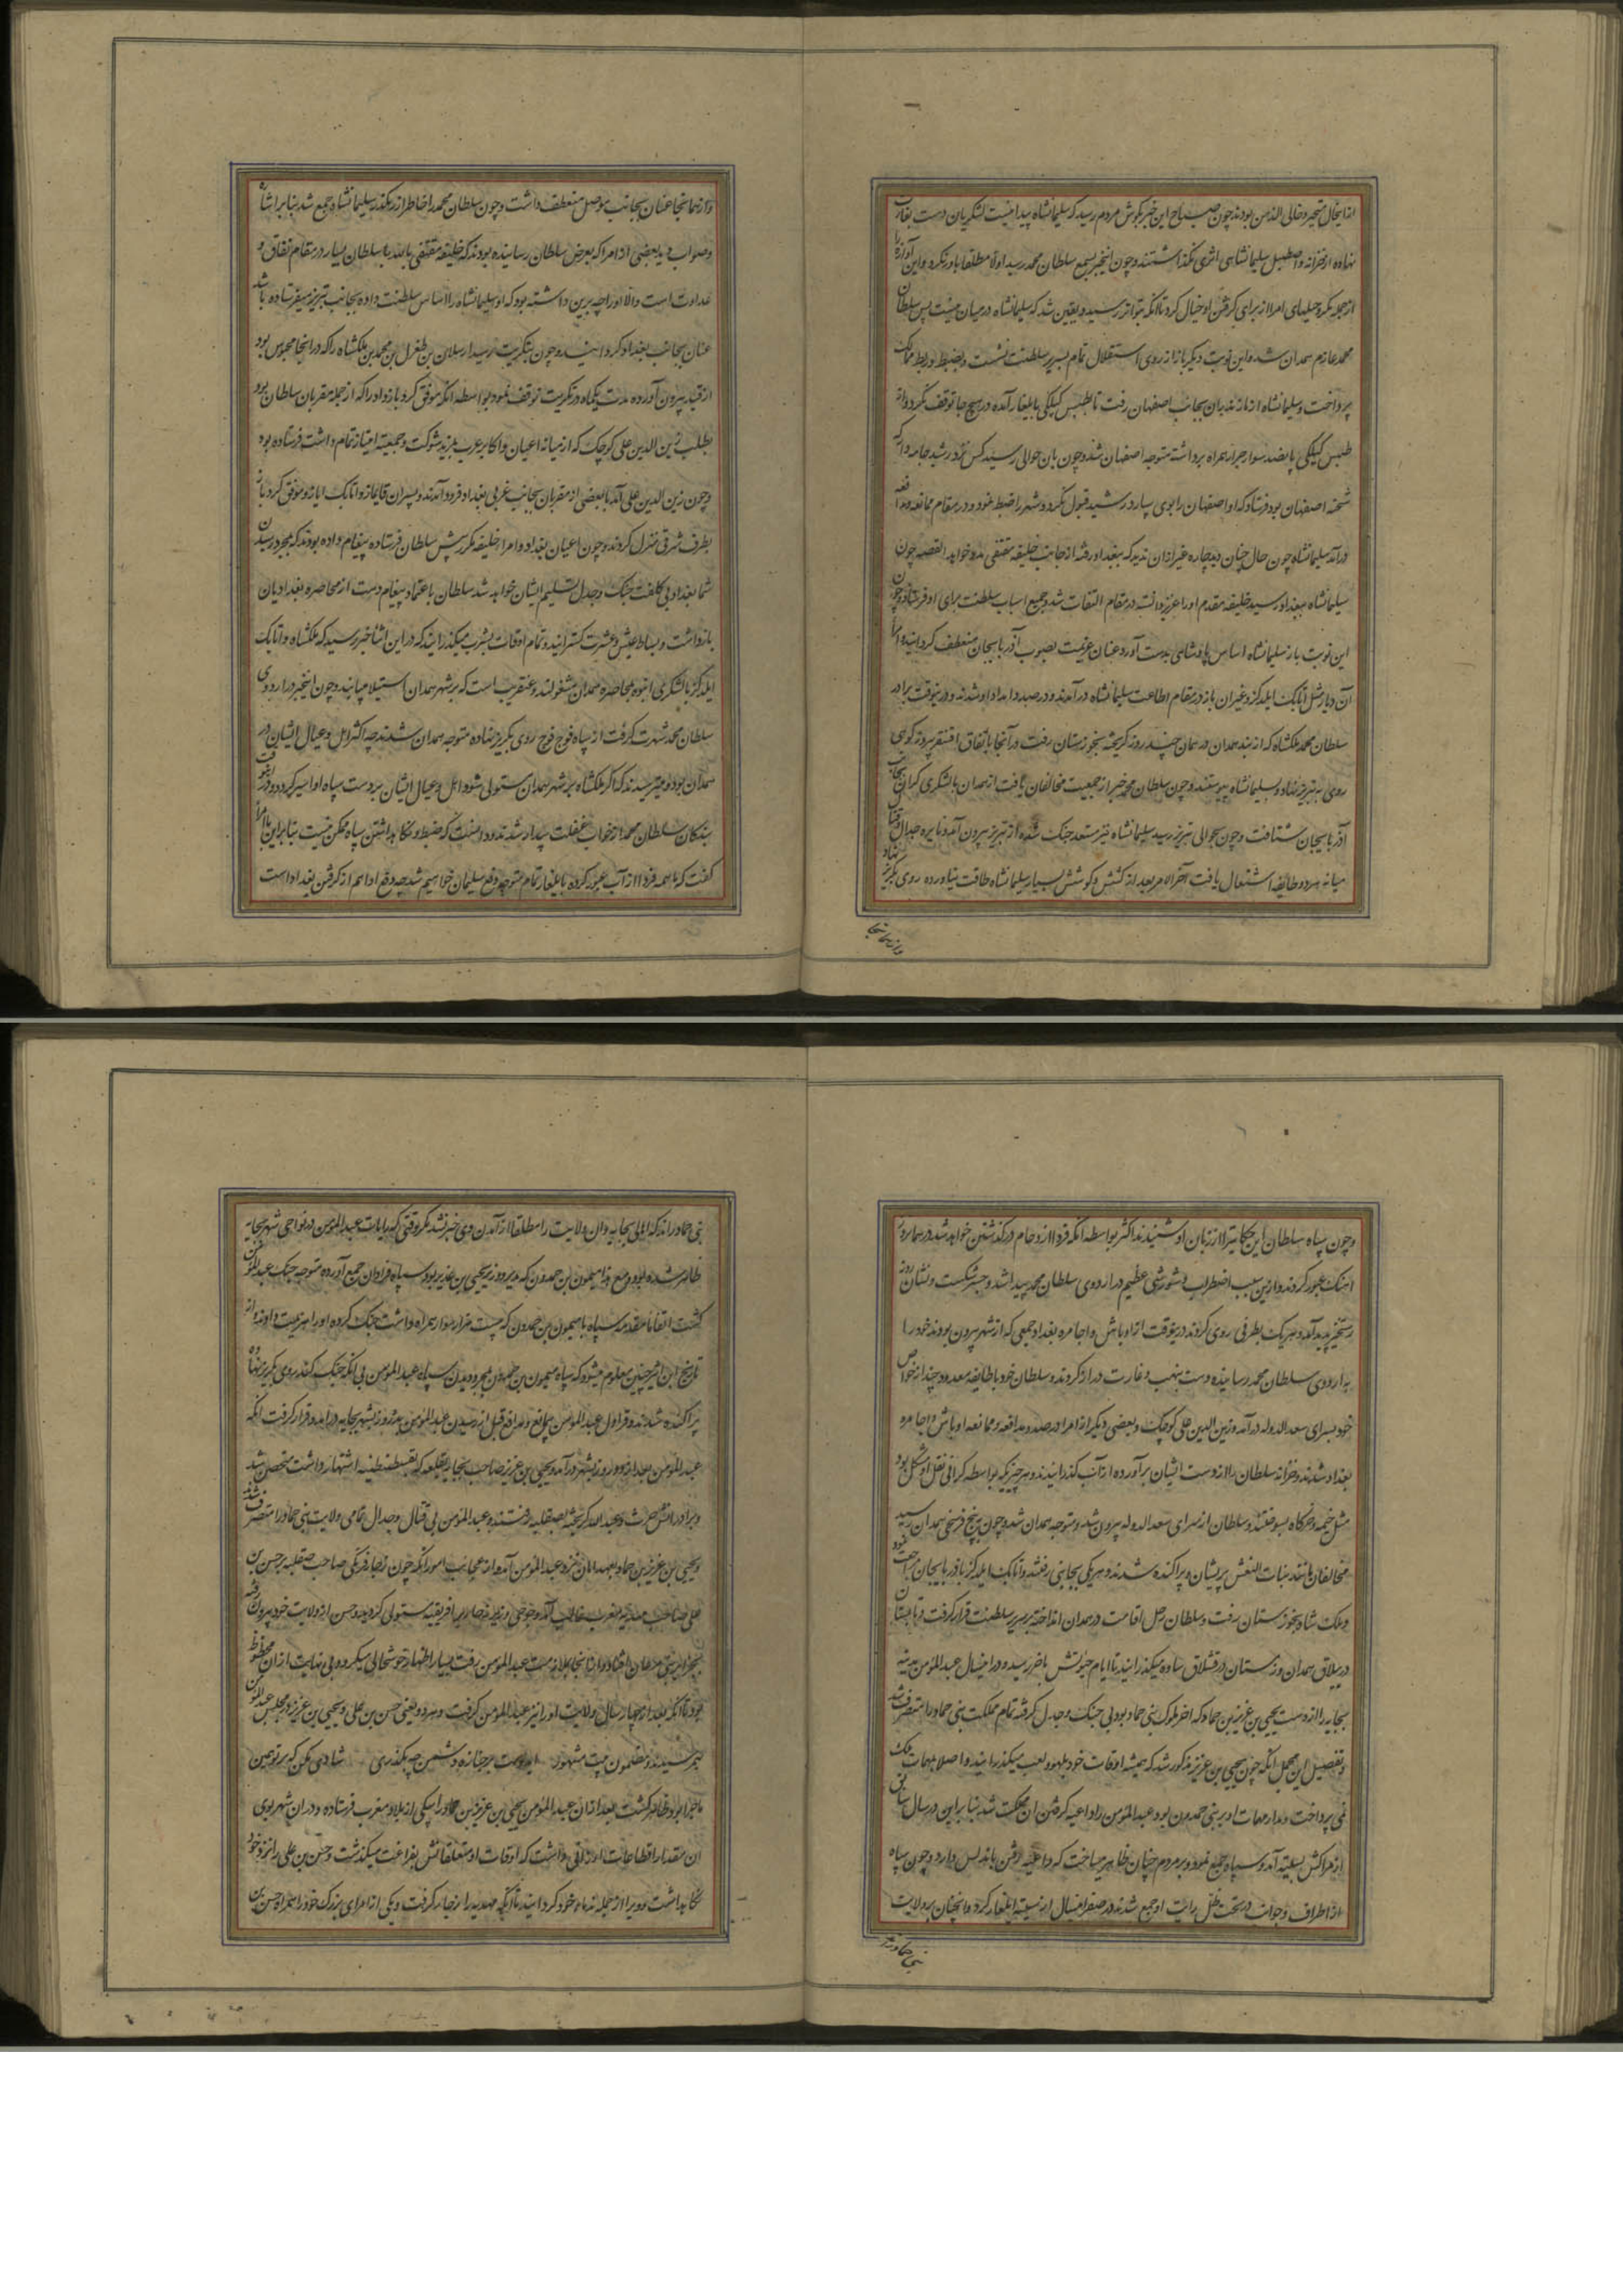 ازینحال متحیر و خالی الذهن بودند چون صباح این خبر بگوش مردم رسید که سلیمانشاه پیدا نیست لشکریان دست بغارت
نهاده از خزانه و اصطبل سلیمانشاهی اثری نگذاشتند و چون اینخبر بسمع سلطان محمد رسید اولا مطلقا باور نکرد و این آوازه را
از جمله مکر و حیلهای امرا از برای گرفتن او خیال کرد تا آنکه بتواتر رسید و یقین شد که سلیمانشاه در میان نیست پس سلطان
محمد عازم همدان شد و این نوبت دیگر باز از روی استقلال تمام بسریر سلطنت نشست و بضبط و ربط ممالک
پرداخت و سلیمانشاه از مازندران بجانب اصفهان رفت تا طبس گیلکی بایلغار آمده در هیچ جا توقف نکرد و از
طبس گیلکی پانصد سوار جرار همراه برداشته متوجه اصفهان شد و چون بان حوالی رسید کس نزد رشید جامه دار که
شحنه اصفهان بود فرستاد که او اصفهان را بوی سپارد رشید قبول نکرد و شهر را ضبط نمود و در مقام ممانعه و مدافعه
درآمد سلیمانشاه چون حال چنان دید چاره غیر ازان ندید که ببغداد رفته از جانب خلیفه مقتفی مدد خواهد القصه چون
سلیمانشاه ببغداد رسید خلیفه مقدم او را عزیز دانسته در مقام التفات شد و جمیع اسباب سلطنت برای او فرستاد و چون
این نوبت باز سلیمانشاه اساس پادشاهی بدست آورد عنان عزیمت بصوب آذربایجان منعطف گردانید و امرا
آن دیار مثل اتابک ایلدگز و غیران باز در مقام اطاعت سلیمانشاه درآمدند و در صدد امداد او شدند و درینوقت برادر
سلطان محمد ملکشاه که از بند همدان در همان چند روز گریخته بخوزستان رفت در آنجا باتفاق اقسنقر پیروز کوهی
روی به تبریز نهاد و بسلیمانشاه پیوستند و چون سلطان محمد خبر از جمعیت مخالفان یافت از همدان با لشکری گران بجانب
آذربایجان شتافت و چون بحوالی تبریز رسید سلیمانشاه نیز مستعد جنک شده از تبریز بیرون آمد و نایره جدال و قتال
میانه هر دو طایفه اشتعال یافت آخرالامر بعد از کشش و کوشش بسیار سلیمانشاه طاقت نیاورده روی بگریز نهاد
وازهمانجا
وازهمانجا عنان بجانب موصل منعطف داشت و چون سلطان محمد را خاطر از رهگذر سلیمانشاه جمع شد بنا بر اشاره
و صواب دید بعضی از امرا که بعرض سلطان رسانیده بودند که خلیفه مقتفی بالله با سلطان بسیار در مقام نفاق و
عداوت است والا او را چه برین داشته بود که او سلیمانشاه را اساس سلطنت داده بجانب تبریز میفرستاده باشد
عنان بجانب بغداد گردانید و چون بتکریت رسید ارسلان بن طغرل بن محمد بن ملکشاه را که در انجا محبوس بود
از قید بیرون آورده مدت یکماه در تکریت توقف نمود بواسطه انکه موفق گرد بازو او را که از جمله مقربان سلطان بود
بطلب زین الدین علی کوچک که از میانه اعیان و اکابر عرب بمزید شوکت و جمعیت امتیاز تمام داشت فرستاده بود
و چون زین الدین علی آمد با بعضی از مقربان بجانب غربی بغداد فرود آمدند و پسران قایماز و اتابک ایاز و موفق گرد بازو
بطرف شرقی منزل کردند و چون اعیان بغداد و امراء خلیفه مکرر پیش سلطان فرستاده پیغام داده بودند که بمجرد رسیدن
شما بغداد بی کلفت جنک و جدل تسلیم ایشان خواهد شد سلطان باعتماد پیغام دست از محاصره بغدادیان
بازداشت و بساط عیش و عشرت گسترانید و تمام اوقات بشرب میگذرانید که در این اثنا خبر رسید که ملکشاه و اتابک
ایلدگز با لشکری انبوه بمحاصره همدان مشغولند و عنقریب است که بر شهر همدان استیلا میابند و چون اینخبر در اردوی
سلطان محمد شهرت گرفت از سپاه فوج فوج روی بگریز نهاده متوجه همدان شدند چه اکثر اهل و عیال ایشان در
همدان بود و میترسیدند که اگر ملکشاه بر شهر همدان مستولی شود اهل و عیال ایشان بر دست سپاه او اسیر گردد و درینوقت
بندگان سلطان محمد از خواب غفلت بیدار شدند و دانست که ضبط و نگاهداشتن سپاه ممکن نیست بنابراین بامرا
گفت که ما همه فردا از آب عبور کرده بایلغار تمام متوجه دفع سلیمان خواهیم شد چه دفع او اهم از گرفتن بغداد است
و چون سپاه سلطان این حکایت را از زبان او شنیدند اکثر بواسطه انکه فردا ازدحام در گذشتن خواهد شد در همانروز
اهنک عبور کردند و ازین سبب اضطراب و شورشی عظیم در اردوی سلطان محمد پیدا شد و جسر شکست و نشان روز
رستخیز پدید آمد و هریک بطرفی روی کردند درینوقت از اوباش و اجامره بغداد جمعی که از شهر بیرون بودند خود را
به اردوی سلطان محمد رسانیده دست بنهب و غارت دراز کردند و سلطان خود با طایفه معدود چند از خواص
خود بسرای سعد الدوله درآمد و زین الدین علی کوچک و بعضی دیگر از امرا در صدد مدافعه و ممانعه اوباش و اجامره
بغداد شدند و خزانه سلطان را از دست ایشان برآورده از آب گذرانیدند و هر چیزی که بواسطه گرانی نقل او مشکل بود
مثل خیمه و خرگاه بسوختند و سلطان از سرای سعد الدوله بیرون شد و متوجه همدان شد و چون به پنج فرسخی همدان رسید
مخالفان مانند بنات النعش پریشان و پراکنده شدند و هریکی بجانبی رفتند و اتابک ایلدگز باذربایجان مراجعت نمود
و ملک شاه بخوزستان رفت و سلطان رحل اقامت در همدان انداخته بر سریر سلطنت قرار گرفت و تابستان
در ییلاق همدان و زمستان در قشلاق ساوه میگذرانید تا ایام حیوتش باخر رسید و در اینسال عبدالمومن مدینه
بجایه را از دست یحیی بن عزیز بن حماد که اخر ملوک بنی حماد بود بی جنک و جدل گرفته تمام مملکت بنی حماد را متصرف شد
و تفصیل این مجمل انکه چون یحیی بن عزیز مذکور شد که همیشه اوقات خود بلهو و لعب میگذرانید و اصلا بمهمات ملک
نمی پرداخت و مدار مهمات او بر بنی حمدون بود عبدالمومن را داعیه گرفتن ان مملکت شد بنا براین در سال سابق
از مراکش بسبته آمد و سپاه جمع نمود و بر مردم چنان ظاهر میساخت که داعیه رفتن باندلس دارد و چون سپاه
از اطراف و جوانب در تحت ظل رایت او جمع شدند در صفر اینسال از سبته ایلغار کرد و انچنان بر ولایت
بنی حماد راند
بنی حماد راند که اهالی بجایه و ان ولایت را مطلقا از آمدن وی خبر نشد مگر وقتی که رایات عبدالمومن در نواحی شهر بجایه
ظاهر شده بود و مع هذا میمون بن حمدون که مدبر و وزیر یحیی بن عزیز بود سپاه فراوان جمع آورده متوجه جنک عبدالمومن
گشت اتفاقا مقدمه سپاه با میمون بن حمدون که بیست هزار سوار همراه داشت جنک کرده او را هزیمت دادند و از
تاریخ ابن اثیر چنین معلوم میشود که سپاه میمون بن حمدون بمجرد دیدن سپاه عبدالمومن بی انکه جنک کنند روی بگریز نهاده
پراکنده شدند و قراول عبدالمومن بی مانع و مدافع قبل از رسیدن عبدالمومن بدو روز بشهر بجایه درآمد و قرار گرفت انگه
عبدالمومن بعد از دو روز بشهر درآمد و یحیی بن عزیز صاحب بجایه بقلعه که بقسطنطینه اشتهار داشت متحصن شد
و برادرانش حرث و عبدالله گریخته بصقلیه رفتند و عبدالمومن بی قتال و جدال تمامی ولایت بنی حماد را متصرف شد
و یحیی بن عزیز بن حماد بعهد امان نزد عبدالمومن آمد و از عجایب امور انکه چون رجار فرنگی صاحب صقلیه بر حسن بن
علی صاحب مهدیه مغرب غالب آمد و رجار بر افریقیه مستولی گردید و حسن از ولایت خود بیرون رفته
بجزایر بنی مزغان افتاد و از انجا بملازمت عبدالمومن رفت بسیار اظهار خوشحالی میکرد و بی نهایت ازان محظوظ
بود تا آنکه بعد از چهار سال ولایت او را نیز عبدالمومن گرفت و هر دو یعنی حسن بن علی و یحیی بن عزیز در مجلس عبدالمومن
بهم رسیدند و مضمون بیت مشهور ای دوست بر جنازه دشمن چو بگذری شادی مکن که بر تو همین
ماجرا بود ظاهر گشت بعد ازان عبدالمومن یحیی بن عزیز بن حماد را بیکی از بلاد مغرب فرستاده و دران شهر بوی
ان مقدار اقطاعات ارزانی داشت که اوقات او و متعلقانش بفراغت میگذشت و حسن بن علی را نزد خود
نگاهداشت و ویرا از جمله ندماء خود گردانید تا آنکه مهدیه را از رجار گرفت و یکی از امرای بزرگ خود را همراه حسن بن